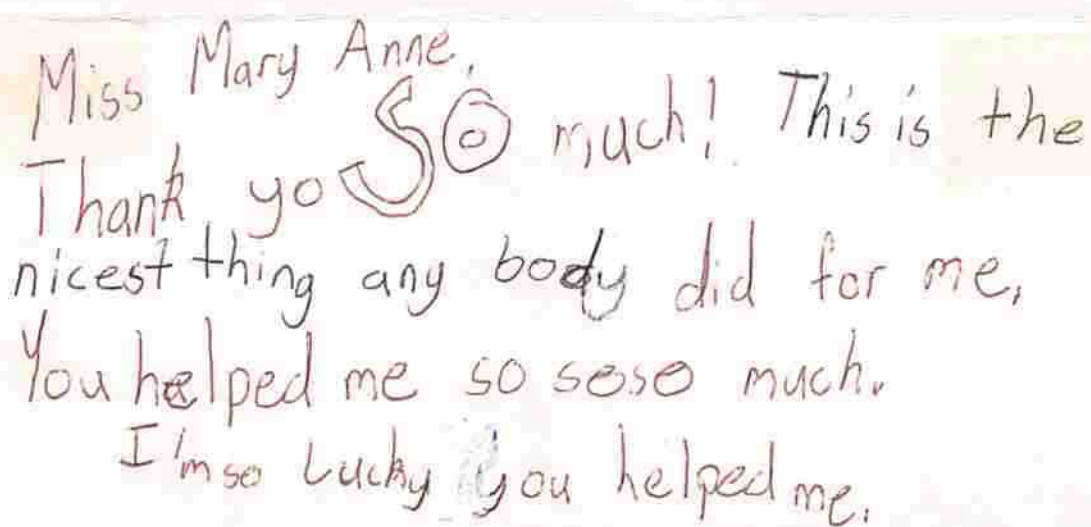 Miss Mary Anne,
Thank yo SO much! This is the
nicest thing any body did for me.
You helped me so soso much.
I'm so Lucky you helped me.